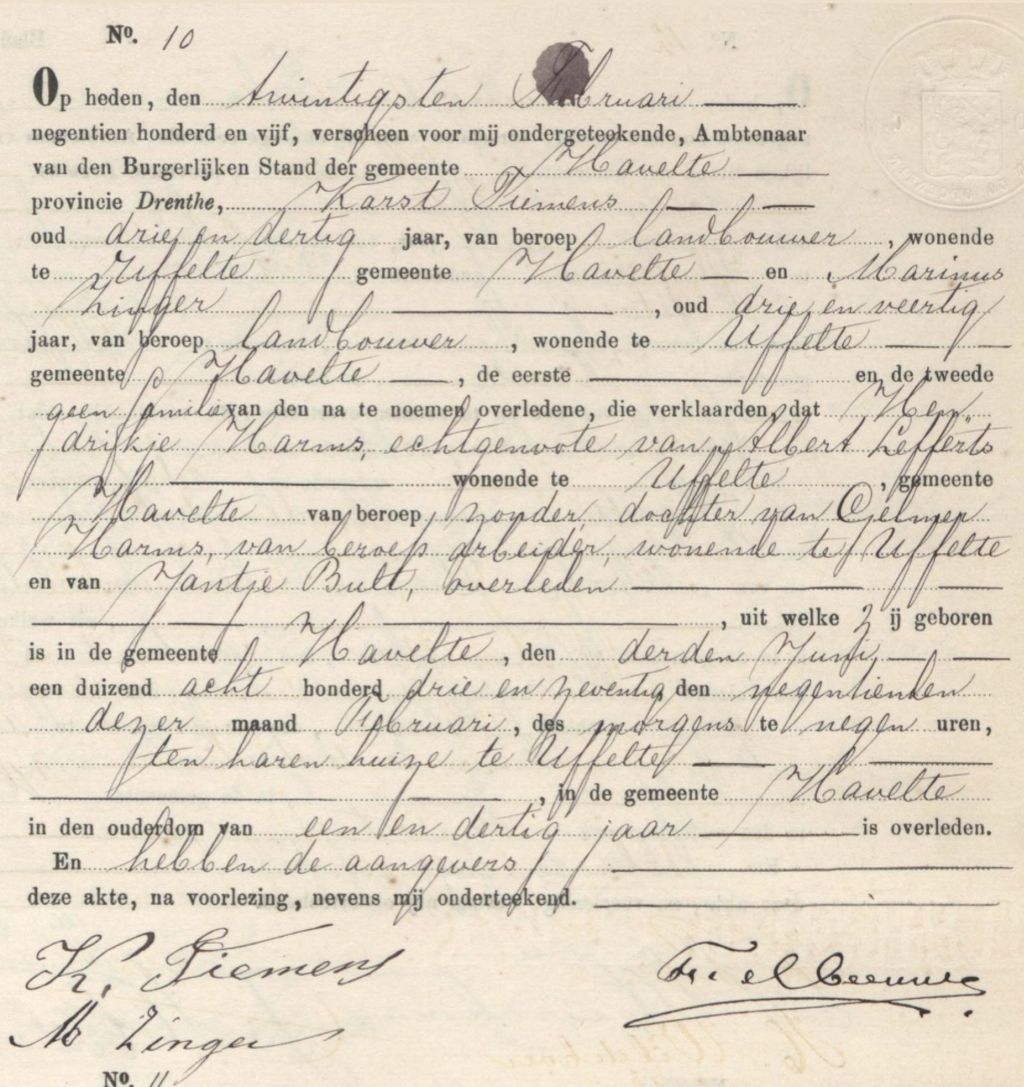 No. 10
Op heden, den twintigsten Februari
negentien honderd en vijf, verscheen voor mij ondergeteekende, Ambtenaar
van den Burgerlijken Stand der gemeente Havelte
provincie Drenthe, Karst Tiemens
oud drie en dertig jaar, van beroep landbouwer, wonende
te Uffelte gemeente Havelte en Marinus
Zinger, oud drie en veertig
jaar, van beroep landbouwer, wonende te Uffelte
gemeente Havelte, de eerste en de tweede
geen familie van den na te noemen overledene, die verklaarden, dat Hen„
drikje Harms, echtgenoote van Albert Lefferts
wonende te Uffelte, gemeente
Havelte van beroep zonder, dochter van
Harms, van beroep arbeider, wonende te Uffelte
en van Jantje Bult, overleden
, uit welke zij geboren
is in de gemeente Havelte, den derden Juni
een duizend acht honderd drie en zeventig den negentienden
dezer maand Februari, des morgens te negen uren,
ten haren huize te Uffelte
, in de gemeente Havelte
in den ouderdom van een en dertig jaar is overleden.
En hebben de aangevers
deze akte, na voorlezing, nevens mij onderteekend.
K. Tiemens
M Zinger
No. 11